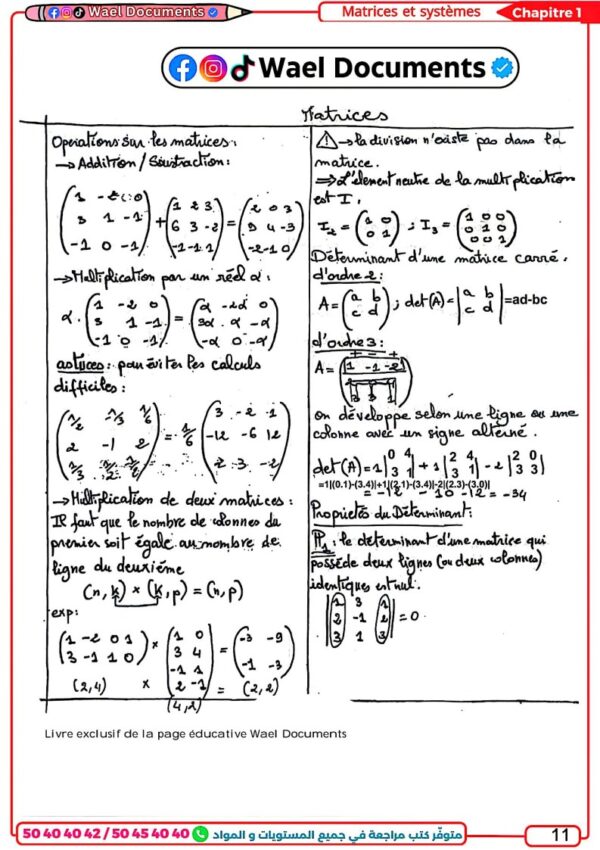 Wael Documents
Matrices et systèmes
Chapitre 1
Wael Documents
Matrices
Operations sur les matrices:
→ Addition / Soustraction:
(1 -2 0 / 3 1 -1 / -1 0 -1) + (1 2 3 / 6 3 -2 / -1 -1 1) = (2 0 3 / 9 4 -3 / -2 -1 0)
→ Multiplication par un réel α:
α . (1 -2 0 / 3 1 -1 / -1 0 -1) = (α -2α 0 / 3α α -α / -α 0 -α)
astuces: pour éviter les calculs
difficiles:
= 1/6 (3 -2 1 / -12 -6 12 / 2 -3 -2)
→ Multiplication de deux matrices:
Il faut que le nombre de colonnes du
premier soit égale au nombre de
ligne du deuxiéme
(n, k) × (k, p) = (n, p)
exp:
(1 -2 0 1 / 3 -1 1 0) × (1 0 / 3 4 / -1 1 / 2 -1) = (-3 -9 / -1 -3)
(2,4) × (4,2) = (2,2)
⚠ → la division n'existe pas dans la
matrice.
⇒ L'élement neutre de la multiplication
est I.
I2 = (1 0 / 0 1) ; I3 = (1 0 0 / 0 1 0 / 0 0 1)
Déterminant d'une matrice carré.
d'ordre 2:
A = (a b / c d) ; det(A) = |a b / c d| =ad-bc
d'ordre 3:
+ - +
A = (1 -1 -2
on développe selon une ligne ou une
colonne avec un signe alterné.
det(A) = 1|0 4 / 3 1| + 1|2 4 / 3 1| - 2|2 0 / 3 3|
=1|(0.1)-(3.4)|+1|(2.1)-(3.4)|-2|(2.3)-(3.0)|
= -12 - 10 - 12 = -34
Proprietés du Déterminant:
P1: le determinant d'une matrice qui
posséde deux lignes (ou deux colonnes)
identiques est nul.
|1 3 1 / 2 -1 2 / 3 1 3| = 0
Livre exclusif de la page éducative Wael Documents
50 40 40 42 / 50 45 40 40 متوفّر كتب مراجعة في جميع المستويات و المواد
11